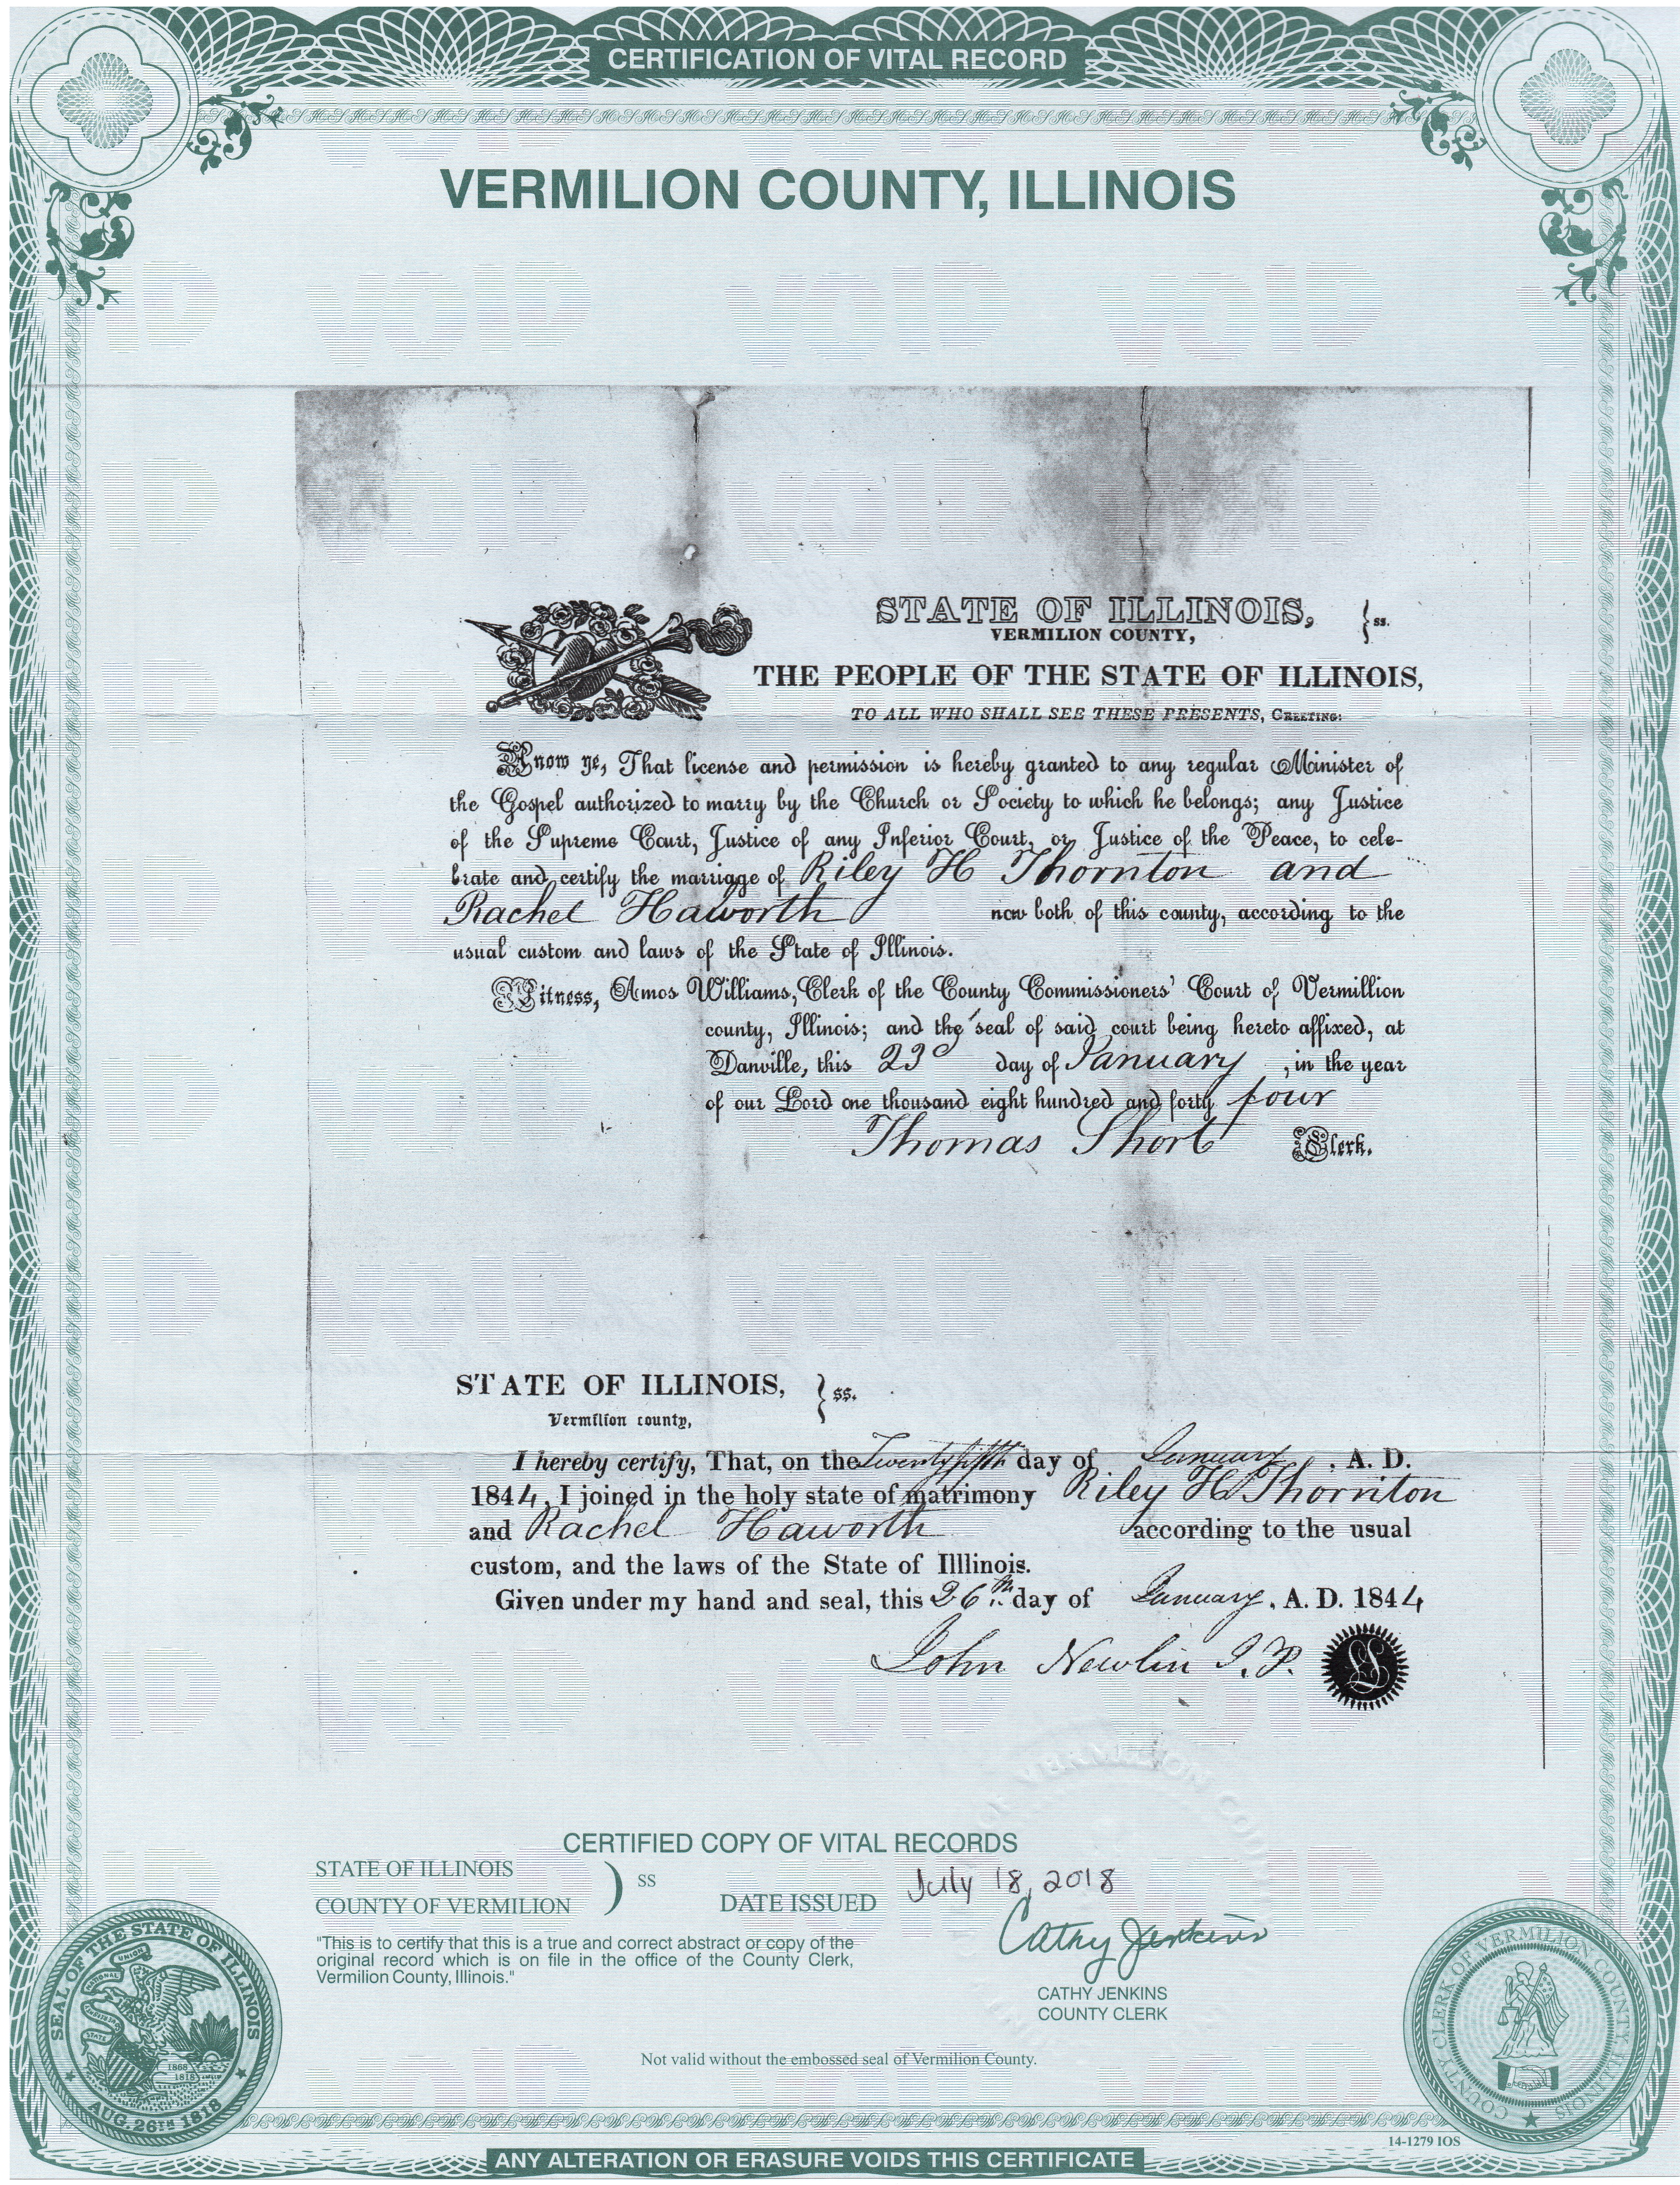 CERTIFICATION OF VITAL RECORD
VERMILION COUNTY, ILLINOIS
VOID VOID VOID VOID
STATE OF ILLINOIS, } ss.
VERMILION COUNTY,
THE PEOPLE OF THE STATE OF ILLINOIS,
TO ALL WHO SHALL SEE THESE PRESENTS, GREETING:
Know ye, That license and permission is hereby granted to any regular Minister of
the Gospel authorized to marry by the Church or Society to which he belongs; any Justice
of the Supreme Court, Justice of any Inferior Court, or Justice of the Peace, to cele-
brate and certify the marriage of Riley H Thornton and
Rachel Haworth now both of this county, according to the
usual custom and laws of the State of Illinois.
Witness, Amos Williams, Clerk of the County Commissioners' Court of Vermillion
county, Illinois; and the seal of said court being hereto affixed, at
Danville, this 23d day of January, in the year
of our Lord one thousand eight hundred and forty four
Thomas Short Clerk.
STATE OF ILLINOIS, } ss.
Vermilion county,
I hereby certify, That, on the Twenty fifth day of January, A. D.
1844, I joined in the holy state of matrimony Riley H Thornton
and Rachel Haworth according to the usual
custom, and the laws of the State of Illlinois.
Given under my hand and seal, this 26th day of January, A. D. 1844
John Newlin J.P. LS
CERTIFIED COPY OF VITAL RECORDS
STATE OF ILLINOIS
COUNTY OF VERMILION ) SS DATE ISSUED July 18, 2018
"This is to certify that this is a true and correct abstract or copy of the
original record which is on file in the office of the County Clerk,
Vermilion County, Illinois."
Cathy Jenkins
CATHY JENKINS
COUNTY CLERK
SEAL OF THE STATE OF ILLINOIS
AUG. 26TH 1818
1868
1818
COUNTY CLERK OF VERMILION COUNTY ILLINOIS
Not valid without the embossed seal of Vermilion County.
14-1279 IOS
ANY ALTERATION OR ERASURE VOIDS THIS CERTIFICATE